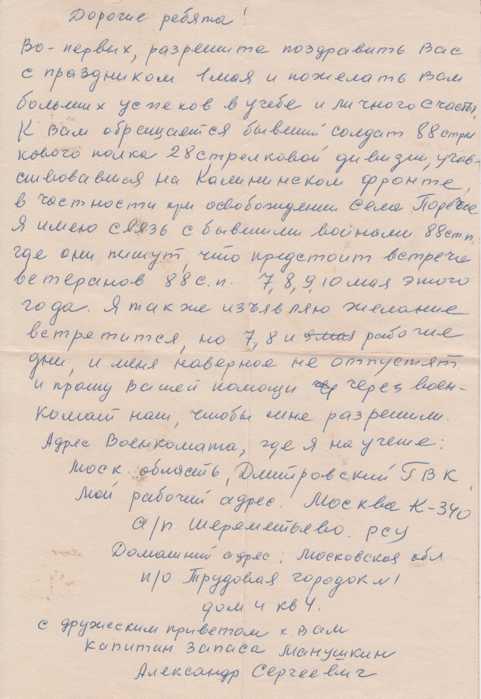 Дорогие ребята!
Во-первых, разрешите поздравить Вас
с праздником 1 мая и пожелать Вам
больших успехов в учебе и личного счастья
К Вам обращается бывший солдат 88 стрел
кового полка 28 стрелковой дивизии, учав-
ствовавшися на Калининском фронте,
в частности при освобождении села Поречье
Я имею связь с бывшими войнами 88 с.п.
где они пишут, что предстоит встреча
ветеранов 88 с.п. 7, 8, 9, 10 мая этого
года. Я также изъявляю желание
встретится, но 7, 8 и рабочие
дни, и меня наверное не отпустят
и прошу Вашей помощи через воен-
комат наш, чтобы мне разрешили.
Адрес Военкомата, где я на учете:
Моск. область, Дмитровский ГВК.
Мой рабочий адрес. Москва К-340
а/п Шереметьево. РСУ
Домашний адрес: Московская обл
п/о Трудовая городок №1
дом 4 кв 4.
с дружеским приветом к Вам
капитан запаса Манушкин
Александр Сергеевич